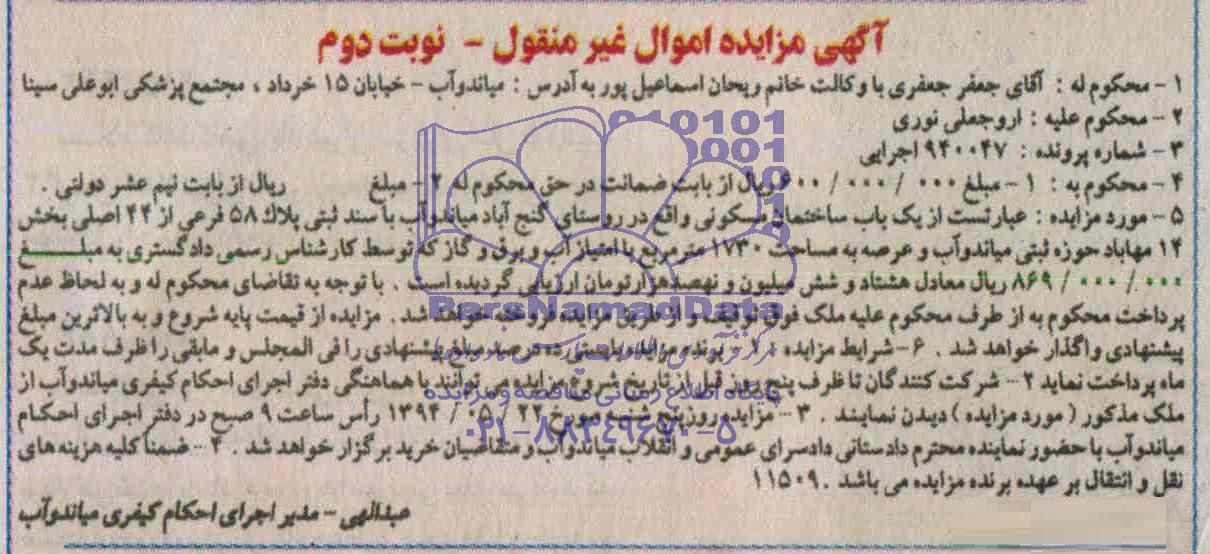 آگهی مزایده اموال غیر منقول - نوبت دوم
۱- محکوم له : آقای جعفر جعفری با وکالت خانم ریحان اسماعیل پور به آدرس : میاندوآب - خیابان ۱۵ خرداد ، مجتمع پزشکی ابوعلی سینا
۲- محکوم علیه : اروجعلی نوری
۳- شماره پرونده : ۹۴۰۰۴۷ اجرایی
۴- محکوم به : ۱- مبلغ ۰۰۰ / ۰۰۰ / ۶۰۰ ریال از بابت ضمانت در حق محکوم له ۲- مبلغ ریال از بابت نیم عشر دولتی .
۵- مورد مزایده : عبارتست از یک باب ساختمان مسکونی واقع در روستای گنج آباد میاندوآب با سند ثبتی پلاک ۵۸ فرعی از ۴۴ اصلی بخش
۱۴ مهاباد حوزه ثبتی میاندوآب و عرصه به مساحت ۱۷۳۰ مترمربع با امتیاز آب و برق و گاز که توسط کارشناس رسمی دادگستری به مبلغ
۰۰۰ / ۰۰۰ / ۸۶۹ ریال معادل هشتاد و شش میلیون و نهصد هزار تومان ارزیابی گردیده است . با توجه به تقاضای محکوم له و به لحاظ عدم
پرداخت محکوم به از طرف محکوم علیه ملک فوق توقیف و از طریق مزایده فروخته خواهد شد . مزایده از قیمت پایه شروع و به بالاترین مبلغ
پیشنهادی واگذار خواهد شد . ۶- شرایط مزایده : ۱- برنده مزایده بایستی ده درصد مبلغ پیشنهادی را فی المجلس و مابقی را ظرف مدت یک
ماه پرداخت نماید ۲- شرکت کنندگان تا ظرف پنج روز قبل از تاریخ شروع مزایده می توانند با هماهنگی دفتر اجرای احکام کیفری میاندوآب از
ملک مذکور ( مورد مزایده ) دیدن نمایند . ۳- مزایده روز پنج شنبه مورخ ۲۲ / ۰۵ / ۱۳۹۴ رأس ساعت ۹ صبح در دفتر اجرای احکام
میاندوآب با حضور نماینده محترم دادستانی دادسرای عمومی و انقلاب میاندوآب و متقاضیان خرید برگزار خواهد شد . ۴- ضمنا کلیه هزینه های
نقل و انتقال بر عهده برنده مزایده می باشد . ۱۱۵۰۹
عبدالهی - مدیر اجرای احکام کیفری میاندوآب
ParsNamadData
پایگاه اطلاع رسانی مناقصه و مزایده
۰۲۱-۸۸۳۴۹۶۷۰-۵